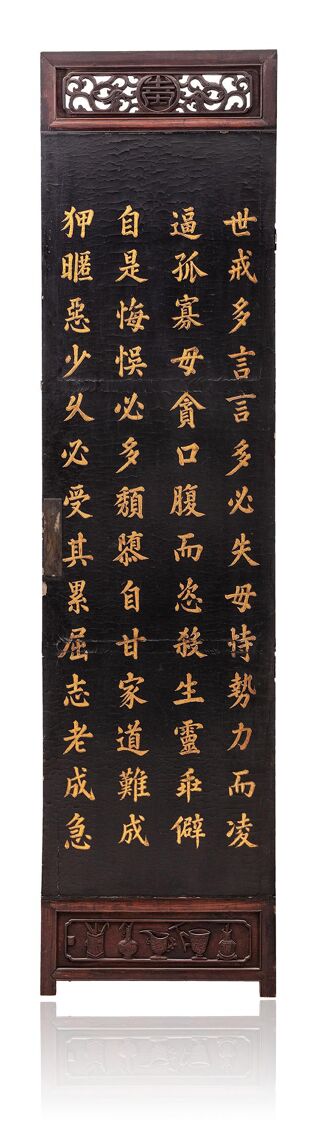 世戒多言言多必失毋恃勢力而凌
逼孤寡毋貪口腹而恣殺生靈乖僻
自是悔悞必多頽惰自甘家道難成
狎暱惡少久必受其累屈志老成急